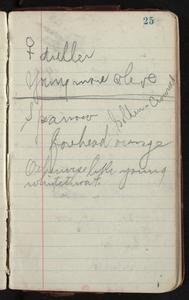 25
♀ duller
Young more olive
Sparrow Golden-Crowned
forehead orange
Otherwise like young
whitethroat.